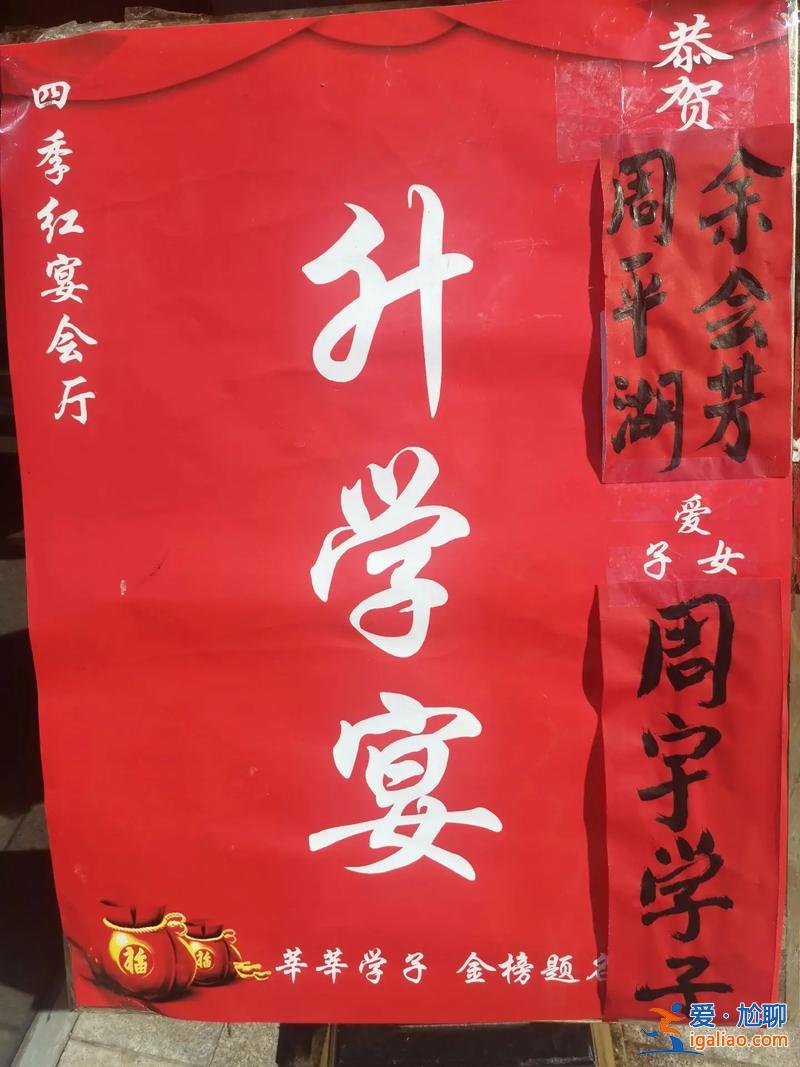 恭贺
余会芳
周平湖
爱
子女
周宇学子
升学宴
四季红宴会厅
莘莘学子 金榜题名
福
福
爱·尬聊
igaliao.com